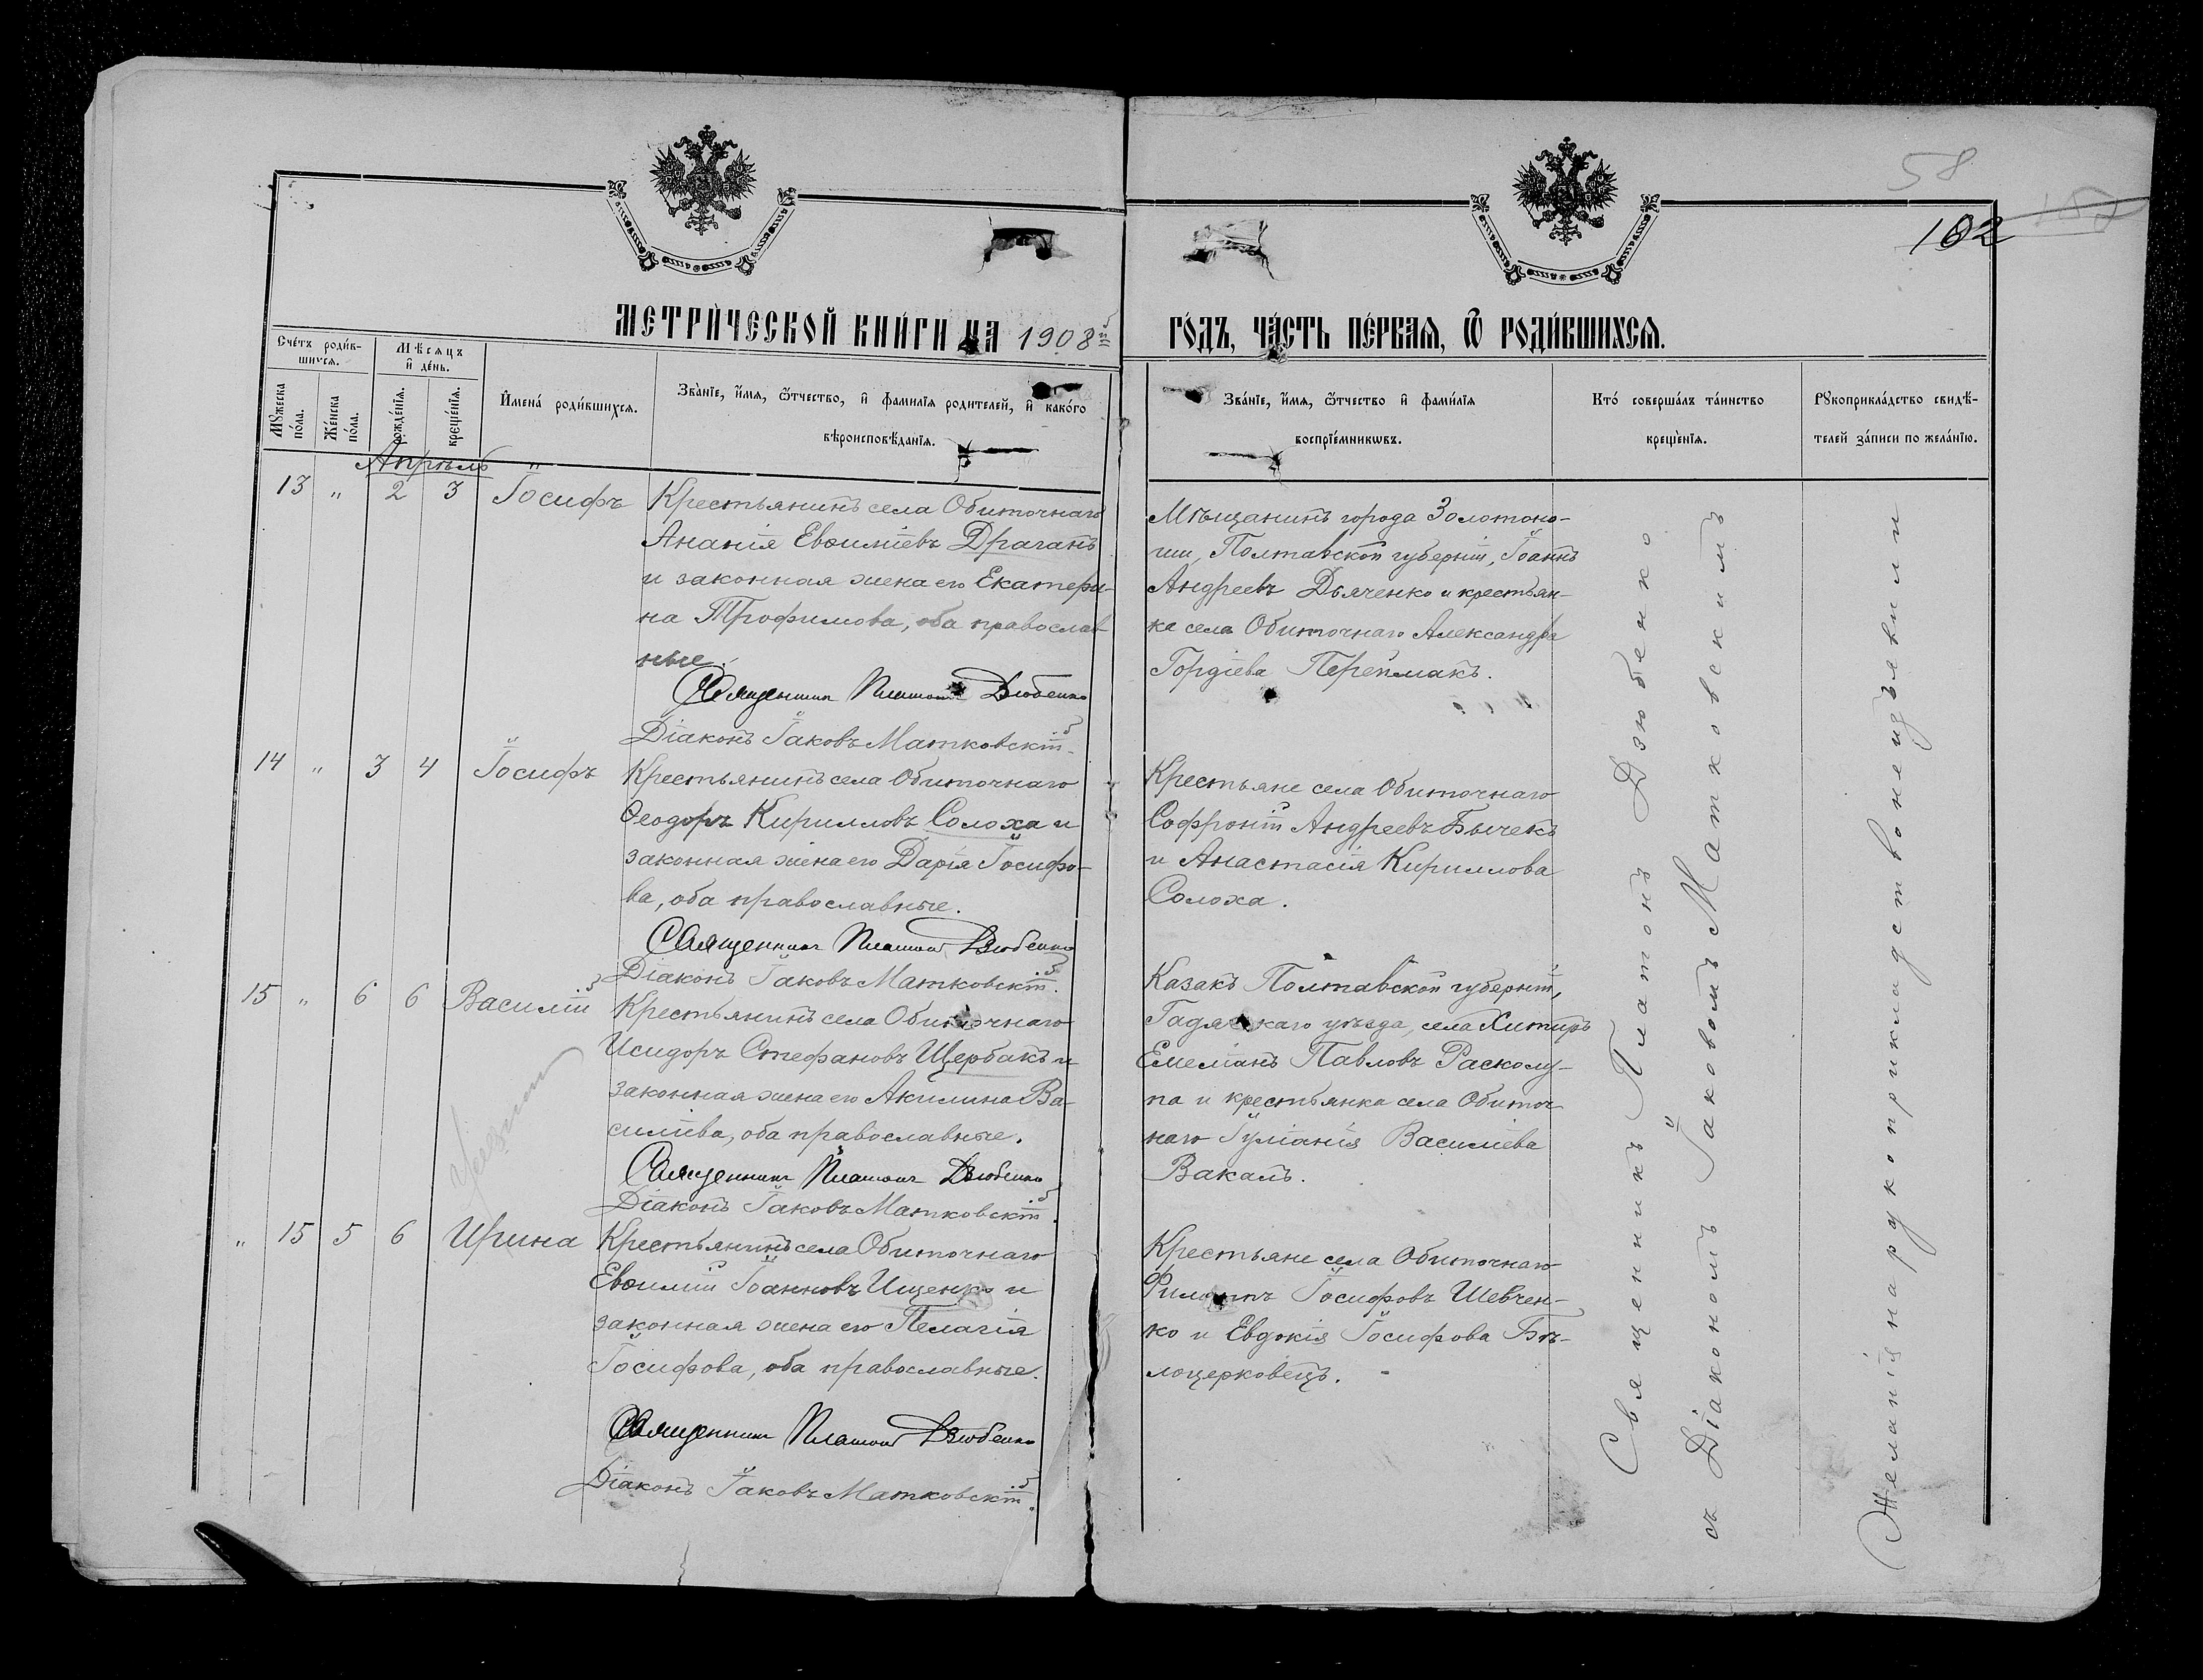 58
102
МЕТРИ́ЧЕСКОЙ КНИ́ГИ НА 1908й ГО́ДЪ, ЧА́СТЬ ПЕ́РВАЯ, Ѿ РОДИ́ВШИХСЯ.
Сче́тъ роди́в-
шихся.
Мꙋжеска по́ла.
Же́нска по́ла.
Мѣ́сяцъ
и҆ де́нь.
рожде́нїя.
креще́нїя.
И҆мена́ роди́вшихся.
Зва́нїе, и҆́мя, ѻ҆́тчество, и҆ фами́лїя родителей, и҆ како́го
вѣроисповѣ́данїя.
Зва́нїе, и҆́мя, ѻ҆́тчество и҆ фами́лїя
воспрїе́мникѡвъ.
Кто́ соверша́лъ та́инство
креще́нїя.
Рꙋкоприкла́дство свидѣ́-
телей за́писи по жела́нїю.
Апрѣль
13 " 2 3 Іосифъ
Крестьянинъ села Обиточнаго
Ананія Евѳиміевъ Драганъ
и законная жена его Екатери-
на Трофимова, оба православ-
ные.
Священникъ Платонъ Дзюбенко
Діаконъ Іаковъ Матковскій.
Мѣщанинъ города Золотоно-
ши, Полтавской губерніи, Іоаннъ
Андреевъ Дьяченко и крестьян-
ка села Обиточнаго Александра
Гордіева Перепмакъ.
14 " 3 4 Іосифъ
Крестьянинъ села Обиточнаго
Ѳеодоръ Кирилловъ Солоха и
законная жена его Дарія Іосифо-
ва, оба православные.
Священникъ Платонъ Дзюбенко
Діаконъ Іаковъ Матковскій.
Крестьяне села Обиточнаго
Софроній Андреевъ Бычекъ
и Анастасія Кириллова
Солоха.
15 " 6 6 Василій
Крестьянинъ села Обиточнаго
Исидоръ Стефановъ Щербакъ и
законная жена его Акилина Ва-
силіева, оба православные.
Священникъ Платонъ Дзюбенко
Діаконъ Іаковъ Матковскій.
Казакъ Полтавской губерніи,
Гадячскаго уѣзда, села Хитцъ
Емеліанъ Павловъ Расколу-
па и крестьянка села Обиточ
наго Іуліанія Василіева
Вакалъ.
" 15 5 6 Ирина
Крестьянинъ села Обиточнаго
Евѳимій Іоанновъ Ищенко и
законная жена его Пелагія
Іосифова, оба православные.
Священникъ Платонъ Дзюбенко
Діаконъ Іаковъ Матковскій.
Крестьяне села Обиточнаго
Филиппъ Іосифовъ Шевчен-
ко и Евдокія Іосифова Бѣ-
лоцерковецъ.
Священникъ Платонъ Дзюбенко
съ Діакономъ Іаковомъ Матковскимъ
Желанія на рукоприкладство не изъявили